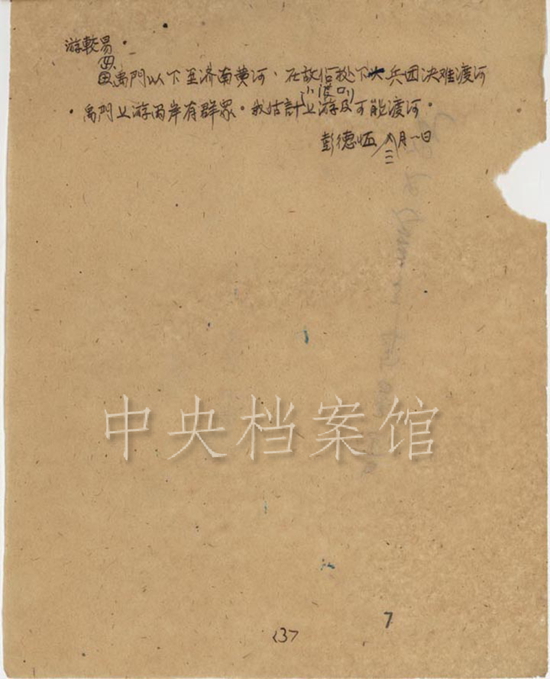 游較易。
禹門以下至济南黄河，在敌优势下大兵团决难渡河
小渡口
。禹門上游两岸有群眾。我估計上游及可能渡河。
彭德怀 八月一日
中央档案馆
137
7